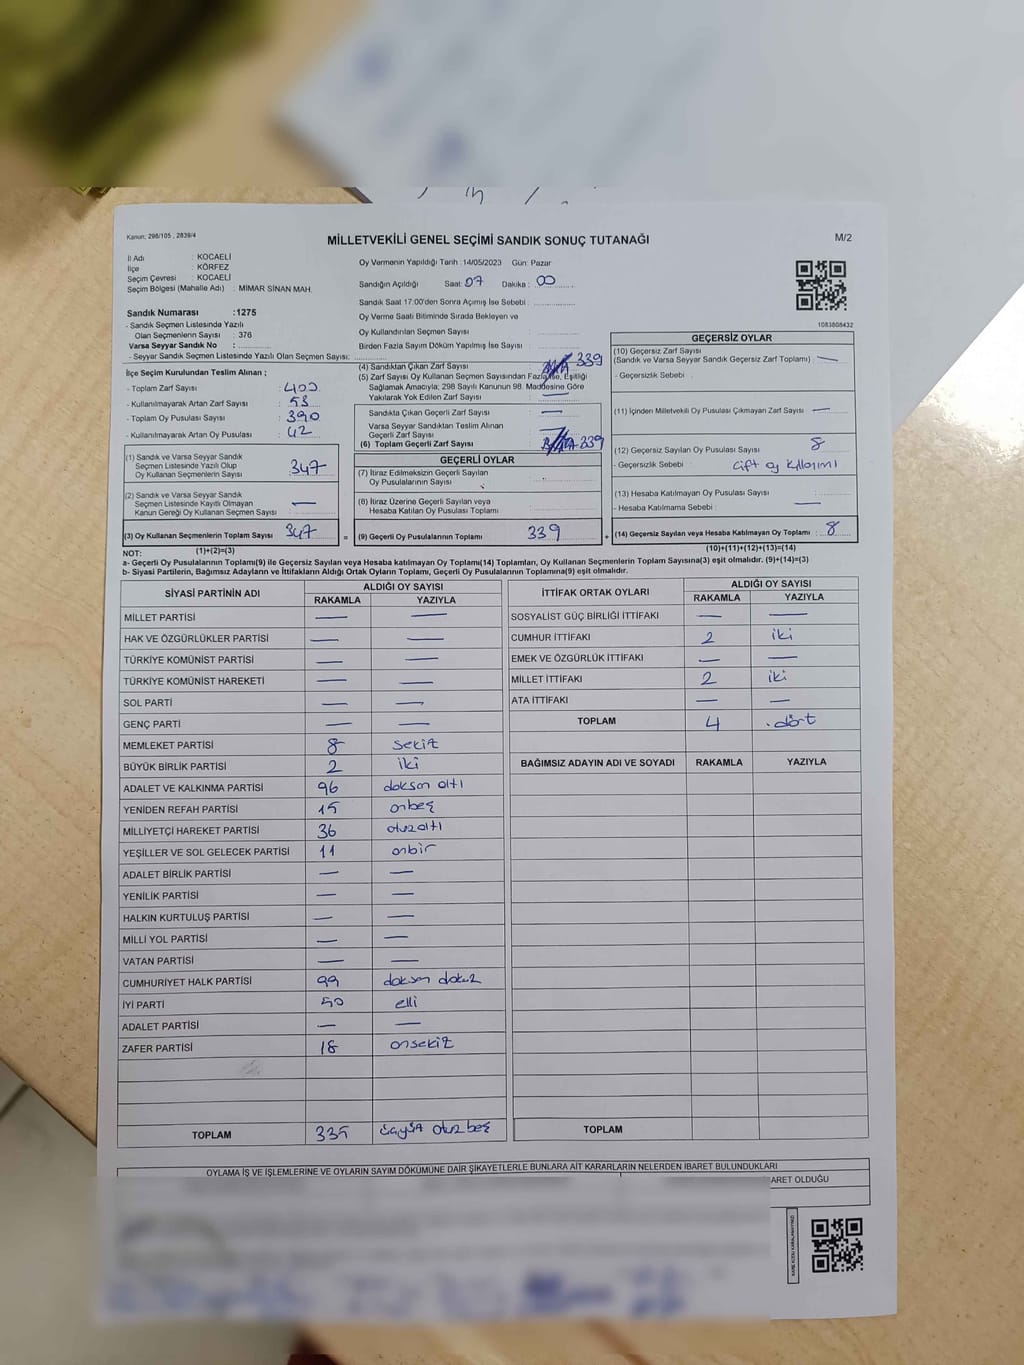 Kanun: 298/105 , 2839/4
MİLLETVEKİLİ GENEL SEÇİMİ SANDIK SONUÇ TUTANAĞI
M/2
İl Adı : KOCAELİ
İlçe : KÖRFEZ
Seçim Çevresi : KOCAELİ
Seçim Bölgesi (Mahalle Adı) : MİMAR SİNAN MAH.
Sandık Numarası :1275
- Sandık Seçmen Listesinde Yazılı
Olan Seçmenlerin Sayısı : 376
Varsa Seyyar Sandık No :
- Seyyar Sandık Seçmen Listesinde Yazılı Olan Seçmen Sayısı:
Oy Vermenin Yapıldığı Tarih :14/05/2023 Gün: Pazar
Sandığın Açıldığı Saat: 07 Dakika : 00
Sandık Saat 17:00'den Sonra Açımış İse Sebebi :
Oy Verme Saati Bitiminde Sırada Bekleyen ve
Oy Kullandırılan Seçmen Sayısı :
Birden Fazla Sayım Döküm Yapılmış İse Sayısı :
1083808432
İlçe Seçim Kurulundan Teslim Alınan ;
- Toplam Zarf Sayısı : 400
- Kullanılmayarak Artan Zarf Sayısı : 53
- Toplam Oy Pusulası Sayısı : 390
- Kullanılmayarak Artan Oy Pusulası : 42
(1) Sandık ve Varsa Seyyar Sandık
Seçmen Listesinde Yazılı Olup
Oy Kullanan Seçmenlerin Sayısı : 347
(2) Sandık ve Varsa Seyyar Sandık
Seçmen Listesinde Kayıtlı Olmayan
Kanun Gereği Oy Kullanan Seçmen Sayısı : —
(3) Oy Kullanan Seçmenlerin Toplam Sayısı : 347 =
(4) Sandıktan Çıkan Zarf Sayısı : 339
(5) Zarf Sayısı Oy Kullanan Seçmen Sayısından Fazla ise, Eşitliği
Sağlamak Amacıyla; 298 Sayılı Kanunun 98. Maddesine Göre
Yakılarak Yok Edilen Zarf Sayısı : —
Sandıkta Çıkan Geçerli Zarf Sayısı : —
Varsa Seyyar Sandıktan Teslim Alınan
Geçerli Zarf Sayısı : —
(6) Toplam Geçerli Zarf Sayısı : 339
GEÇERLİ OYLAR
(7) İtiraz Edilmeksizin Geçerli Sayılan
Oy Pusulalarının Sayısı :
(8) İtiraz Üzerine Geçerli Sayılan veya
Hesaba Katılan Oy Pusulası Toplamı :
(9) Geçerli Oy Pusulalarının Toplamı : 339 +
GEÇERSİZ OYLAR
(10) Geçersiz Zarf Sayısı
(Sandık ve Varsa Seyyar Sandık Geçersiz Zarf Toplamı) : —
- Geçersizlik Sebebi :
(11) İçinden Milletvekili Oy Pusulası Çıkmayan Zarf Sayısı : —
(12) Geçersiz Sayılan Oy Pusulası Sayısı : 8
- Geçersizlik Sebebi : Çift oy kullanımı
(13) Hesaba Katılmayan Oy Pusulası Sayısı :
- Hesaba Katılmama Sebebi : —
(14) Geçersiz Sayılan veya Hesaba Katılmayan Oy Toplamı : 8
NOT: (1)+(2)=(3) (10)+(11)+(12)+(13)=(14)
a- Geçerli Oy Pusulasının Toplamı(9) ile Geçersiz Sayılan veya Hesaba katılmayan Oy Toplamı(14) Toplamları, Oy Kullanan Seçmenlerin Toplam Sayısına(3) eşit olmalıdır. (9)+(14)=(3)
b- Siyasi Partilerin, Bağımsız Adayların ve İttifakların Aldığı Ortak Oyların Toplamı, Geçerli Oy Pusulalarının Toplamına(9) eşit olmalıdır.
SİYASİ PARTİNİN ADI ALDIĞI OY SAYISI
RAKAMLA YAZIYLA
MİLLET PARTİSİ — —
HAK VE ÖZGÜRLÜKLER PARTİSİ — —
TÜRKİYE KOMÜNİST PARTİSİ — —
TÜRKİYE KOMÜNİST HAREKETİ — —
SOL PARTİ — —
GENÇ PARTİ — —
MEMLEKET PARTİSİ 8 sekiz
BÜYÜK BİRLİK PARTİSİ 2 iki
ADALET VE KALKINMA PARTİSİ 96 doksan altı
YENİDEN REFAH PARTİSİ 15 onbeş
MİLLİYETÇİ HAREKET PARTİSİ 36 otuzaltı
YEŞİLLER VE SOL GELECEK PARTİSİ 11 onbir
ADALET BİRLİK PARTİSİ — —
YENİLİK PARTİSİ — —
HALKIN KURTULUŞ PARTİSİ — —
MİLLİ YOL PARTİSİ — —
VATAN PARTİSİ — —
CUMHURİYET HALK PARTİSİ 99 doksan dokuz
İYİ PARTİ 50 elli
ADALET PARTİSİ — —
ZAFER PARTİSİ 18 onsekiz
TOPLAM 335 üçyüz otuz beş
İTTİFAK ORTAK OYLARI ALDIĞI OY SAYISI
RAKAMLA YAZIYLA
SOSYALİST GÜÇ BİRLİĞİ İTTİFAKI — —
CUMHUR İTTİFAKI 2 iki
EMEK VE ÖZGÜRLÜK İTTİFAKI — —
MİLLET İTTİFAKI 2 iki
ATA İTTİFAKI — —
TOPLAM 4 dört
BAĞIMSIZ ADAYIN ADI VE SOYADI RAKAMLA YAZIYLA
TOPLAM
OYLAMA İŞ VE İŞLEMLERİNE VE OYLARIN SAYIM DÖKÜMÜNE DAİR ŞİKAYETLERLE BUNLARA AİT KARARLARIN NELERDEN İBARET BULUNDUKLARI
ARET OLDUĞU